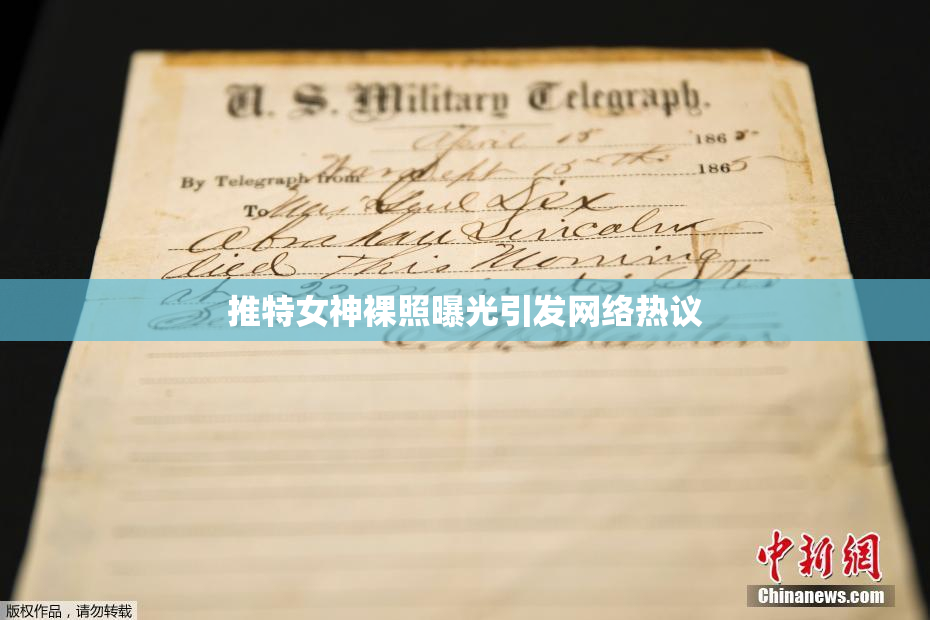 U. S. Military Telegraph.
April 15 1865
By Telegraph from War Dept 15th 1865
To Maj Genl Dix
Abraham Lincoln
died This Morning
at 22 minutes after
推特女神裸照曝光引发网络热议
中新网
Chinanews.com
版权作品，请勿转载